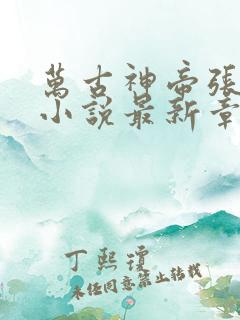 萬古神帝張
小說最新章
丁熙瓊
未经同意禁止转载